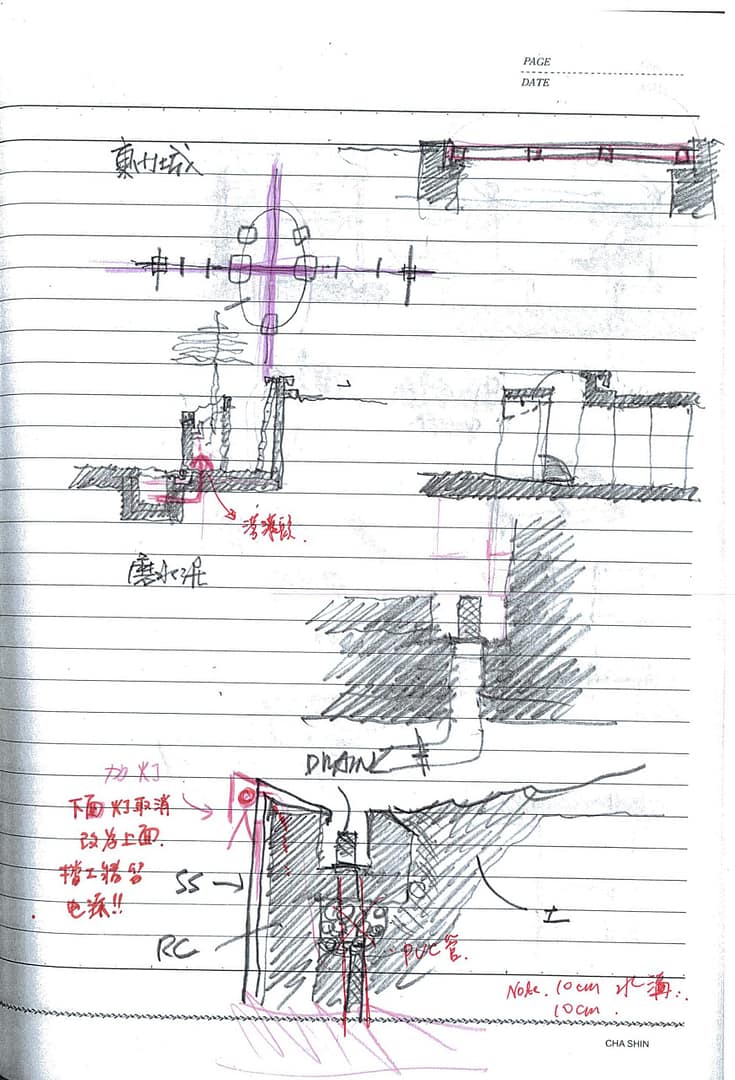 PAGE
DATE
惠州城
落水頭.
磨水泥
DRAIN
加灯
下面灯取消
改为上面.
电源!!
SS
RC
土
PVC管.
Note. 10cm 水溝.
10cm.
CHA SHIN